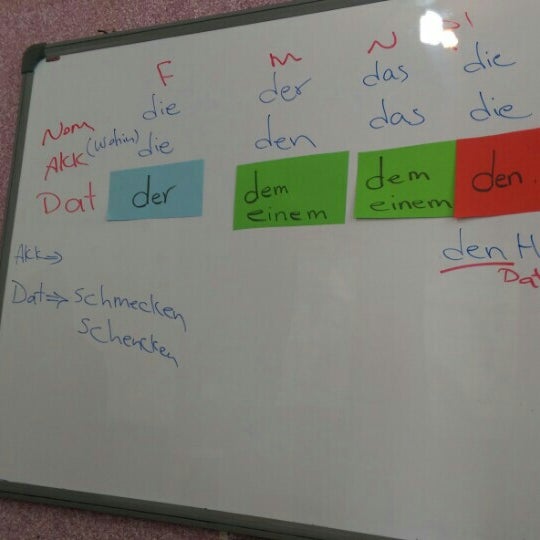 F M N Pl
die der das die
Nom
Akk (Wohin) die den das die
Dat der dem dem den.
einem einem
Akk⇒ den H
Dat
Dat⇒ schmecken
schencken